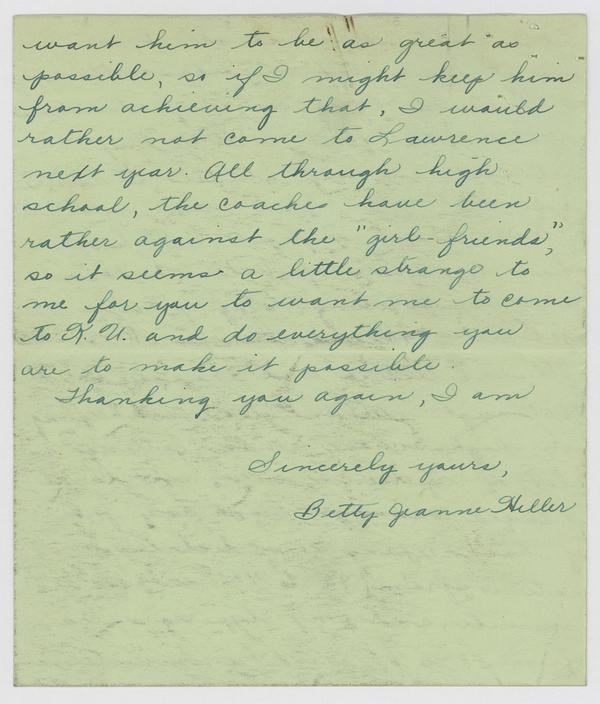 want him to be "as great as
possible, so if I might keep him
from achieving that, I would
rather not come to Lawrence
next year. All through high
school, the coaches have been
rather against the "girl-friends",
so it seems a little strange to
me for you to want me to come
to K. U. and do everything you
are to make it possible.
Thanking you again, I am
Sincerely yours,
Betty Jeanne Hiller